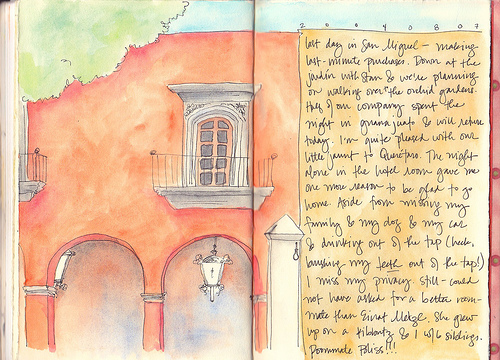 2 0 0 4 0 8 0 7
last day in San Miguel – making
last-minute purchases. Down at the
jardin with Stan & we're planning
on walking over the orchid gardens.
Half of our company spent the
night in guanajuato & will return
today. I'm quite pleased with our
little jaunt to Querétaro. The night
alone in the hotel room gave me
one more reason to be glad to go
home. Aside from missing my
family & my dog & my cat
& drinking out of the tap (heck,
brushing my teeth out of the tap!)
I miss my privacy. Still – could
not have asked for a better room-
mate than Einat Metzl. She grew
up on a kibbutz & w/6 siblings.
Roommate Bliss!!!